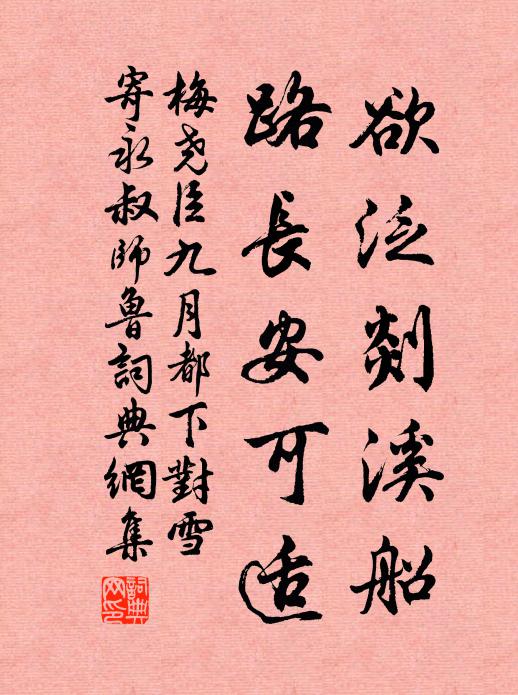 欲泛剡溪船
路長安可适
梅尧臣九月都下對雪
寄永叔師魯詞典網集
詞典网印